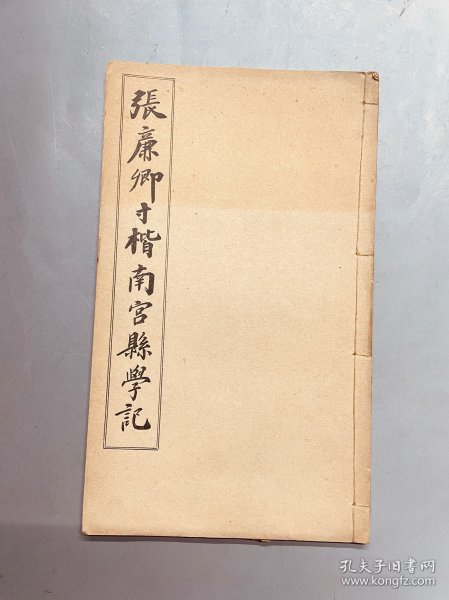 張廉卿寸楷南宮縣學記
孔夫子旧书网
www.kongfz.com